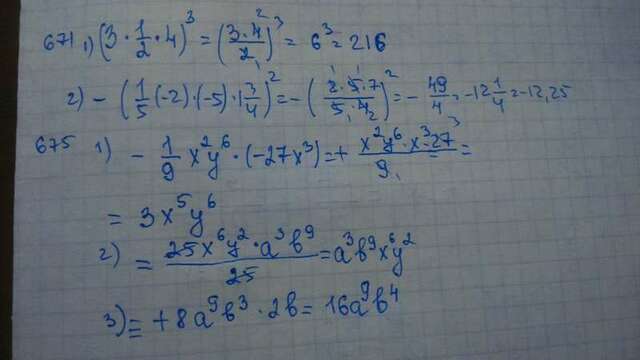 671 1) (3·1/2·4)³ = (3·4²/2₁)³ = 6³ = 216
2) -(1/5(-2)·(-5)·1 3/4)² = -(2·5·7/5·4₂)² = -49/4 = -12 1/4 = -12,25
675 1) -1/9 x²y⁶·(-27x³) = + x²y⁶·x³·27³/9₁ =
= 3x⁵y⁶
2) = 25x⁶y²·a³b⁹/25 = a³b⁹x⁶y²
3) = +8a⁹b³·2b = 16a⁹b⁴